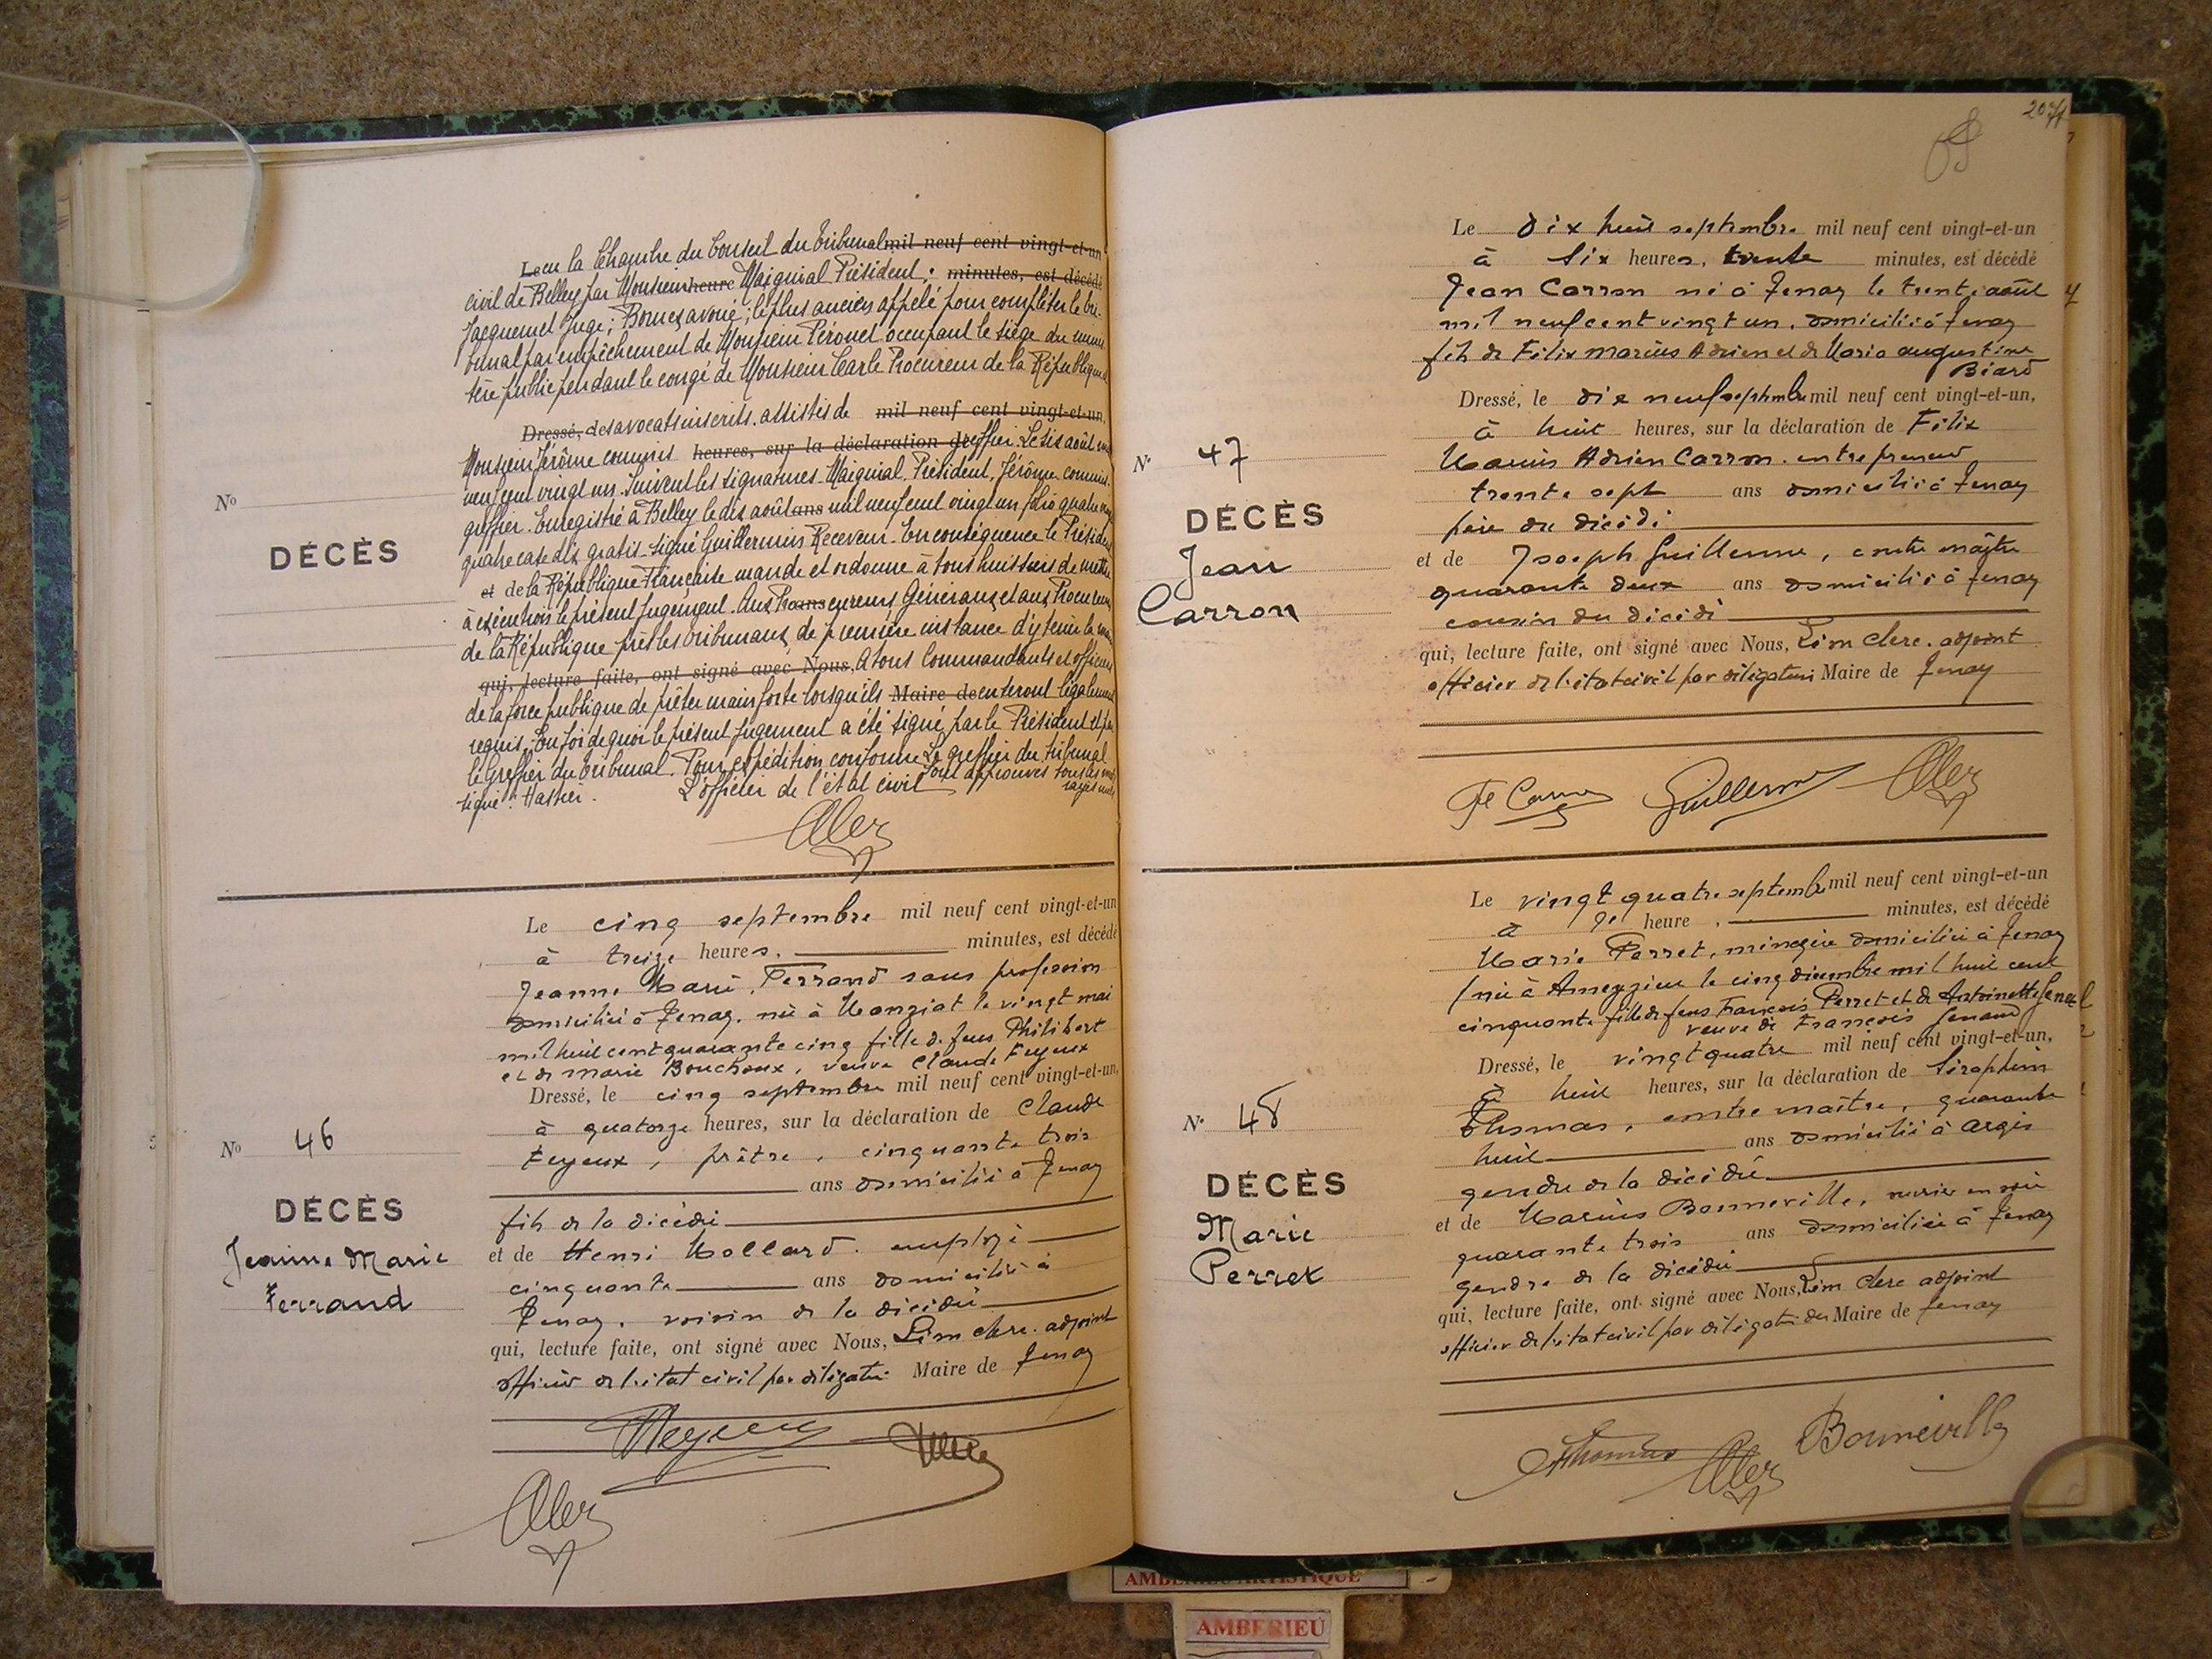 en la Chambre du Conseil du Tribunal mil neuf cent vingt-et-un
civil de Belley par Monsieur heure Maignial Président; minutes, est décédé
Jacquemet Juge; Bornez avoué; le plus ancien appelé pour compléter le tri-
bunal par empêchement de Monsieur Péronet occupant le siège du minis
tère public pendant le congé de Monsieur Carle Procureur de la République
Dressé, des avocats inscrits. assistés de mil neuf cent vingt-et-un,
Monsieur Jérôme commis heures, sur la déclaration de greffier. Le dix août mil
neuf cent vingt un. Suivent les signatures. Maignial. Président, Jérôme. commis.
greffier. Enregistré à Belley le dix août ans mil neuf cent vingt un, folio quatre vingt
quatre case dix gratis. signé Guillermin Receveur. En conséquence le Président
N°
DÉCÈS
et de la République Française mande et ordonne à tous huissiers de mettre
à exécution le présent Jugement. Aux Procureurs ans Généraux et aux Procureurs
de la République près les tribunaux de première instance d'y tenir la main
qui, lecture faite, ont signé avec Nous, A tous Commandants et officiers
de la force publique de prêter main forte lorsqu'ils Maire de en seront légalement
requis. En foi de quoi le présent Jugement a été signé par le Président et par
le Greffier du Tribunal. Pour expédition conforme Le greffier du tribunal
signé: L'officier de l'état civil Sont approuvés tous les mots
rayés nuls
Clerc
Le cinq septembre mil neuf cent vingt-et-un
à treize heures, minutes, est décédé
Jeanne Marie Ferrand sans profession
domiciliée à Tenay. née à Mongiat le vingt mai
mil huit cent quarante cinq fille de feus Philibert
et de Marie Bouchoux, veuve Claude Feyeux
Dressé, le cinq septembre mil neuf cent vingt-et-un,
à quatorze heures, sur la déclaration de Claude
Feyeux, prêtre, cinquante trois
ans domicilié à Tenay
fils de la décédée
et de Henri Mollard. employé
cinquante ans domicilié à
Tenay. voisin de la décédée
qui, lecture faite, ont signé avec Nous, Léon Clerc. adjoint
officier de l'état civil par délégation Maire de Tenay
N° 46
DÉCÈS
Jeanne Marie
Ferrand
Clerc
Le dix huit septembre mil neuf cent vingt-et-un
à six heures, trente minutes, est décédé
Jean Carron né à Tenay le trente août
mil neuf cent vingt un. domicilié à Tenay
fils de Félix Marius Adrien et de Maria Augustine
Biard
Dressé, le dix neuf septembre mil neuf cent vingt-et-un,
à huit heures, sur la déclaration de Félix
Marius Adrien Carron. entrepreneur
trente sept ans domicilié à Tenay
père du décédé
et de Joseph Guillerme, contre maître
quarante deux ans domicilié à Tenay
cousin du décédé
qui, lecture faite, ont signé avec Nous, Léon Clerc. adjoint
officier de l'état civil par délégation Maire de Tenay
N° 47
DÉCÈS
Jean
Carron
Fe Carron Guillerme Clerc
Le vingt quatre septembre mil neuf cent vingt-et-un
à heure, minutes, est décédé
Marie Perret, ménagère domiciliée à Tenay
née à Ameyzieu le cinq décembre mil huit cent
cinquante fille de feus François Perret et de Antoinette
veuve de François
Dressé, le vingt quatre mil neuf cent vingt-et-un,
à huit heures, sur la déclaration de Séraphin
Thomas, contre maître, quarante
huit ans domicilié à Argis
gendre de la décédée
et de Marius Bonneville, ouvrier en soie
quarante trois ans domicilié à Tenay
gendre de la décédée
qui, lecture faite, ont signé avec Nous, Léon Clerc adjoint
officier de l'état civil par délégation du Maire de Tenay
N° 48
DÉCÈS
Marie
Perret
Thomas Clerc Bonneville
AMBERIEU ARTISTIQUE
AMBERIEU